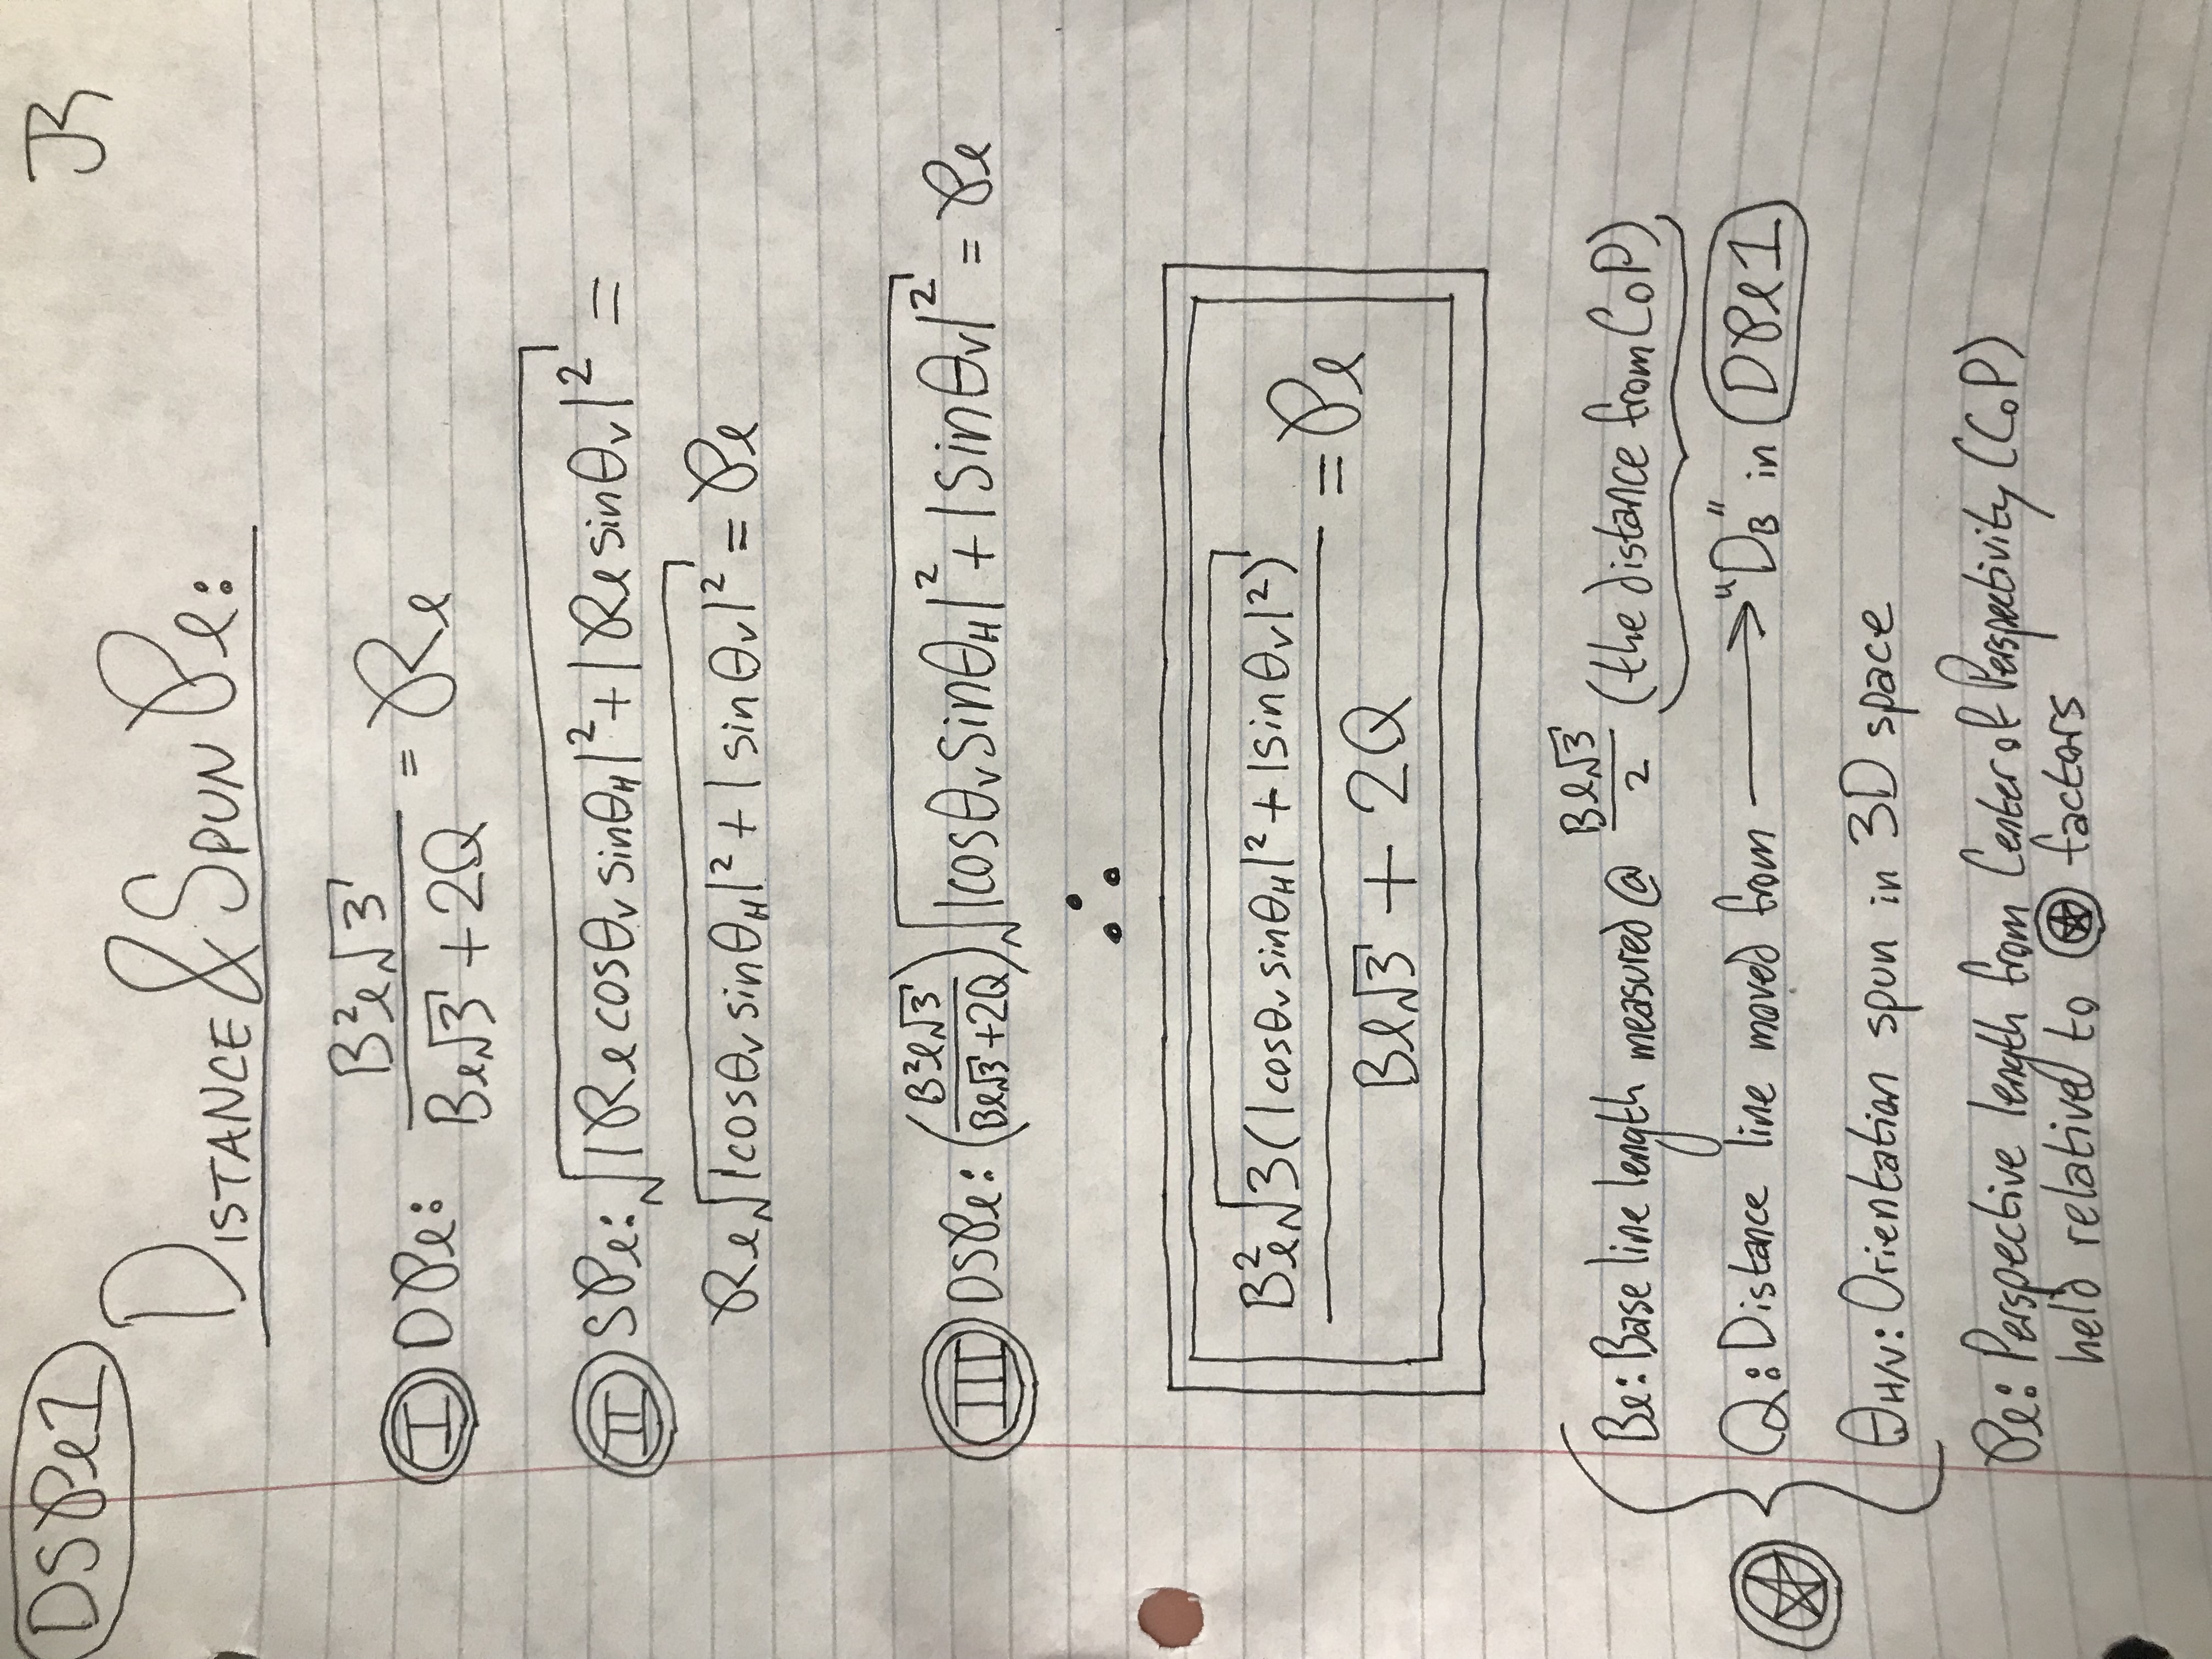 DSPl1
JR
DISTANCE & SPUN Pl:
I DPl: B²l√3 / (Bl√3 + 2Q) = Rl
II SPl: √(|Rl cosθv sinθH|² + |Rl sinθv|²) =
Rl√(|cosθv sinθH|² + |sinθv|²) = Pl
III DSPl: (B²l√3 / (Bl√3 + 2Q))√(|cosθv sinθH|² + |sinθv|²) = Pl
∴
B²l√(3(|cosθv sinθH|² + |sinθv|²)) / (Bl√3 + 2Q) = Pl
Bl: Base line length measured @ Bl√3 / 2 (the distance from CoP)
Q: Distance line moved from → "DB" in DPl1
θH/V: Orientation spun in 3D space
Pl: Perspective length from Center of Perspectivity (CoP)
held relative to ★ factors